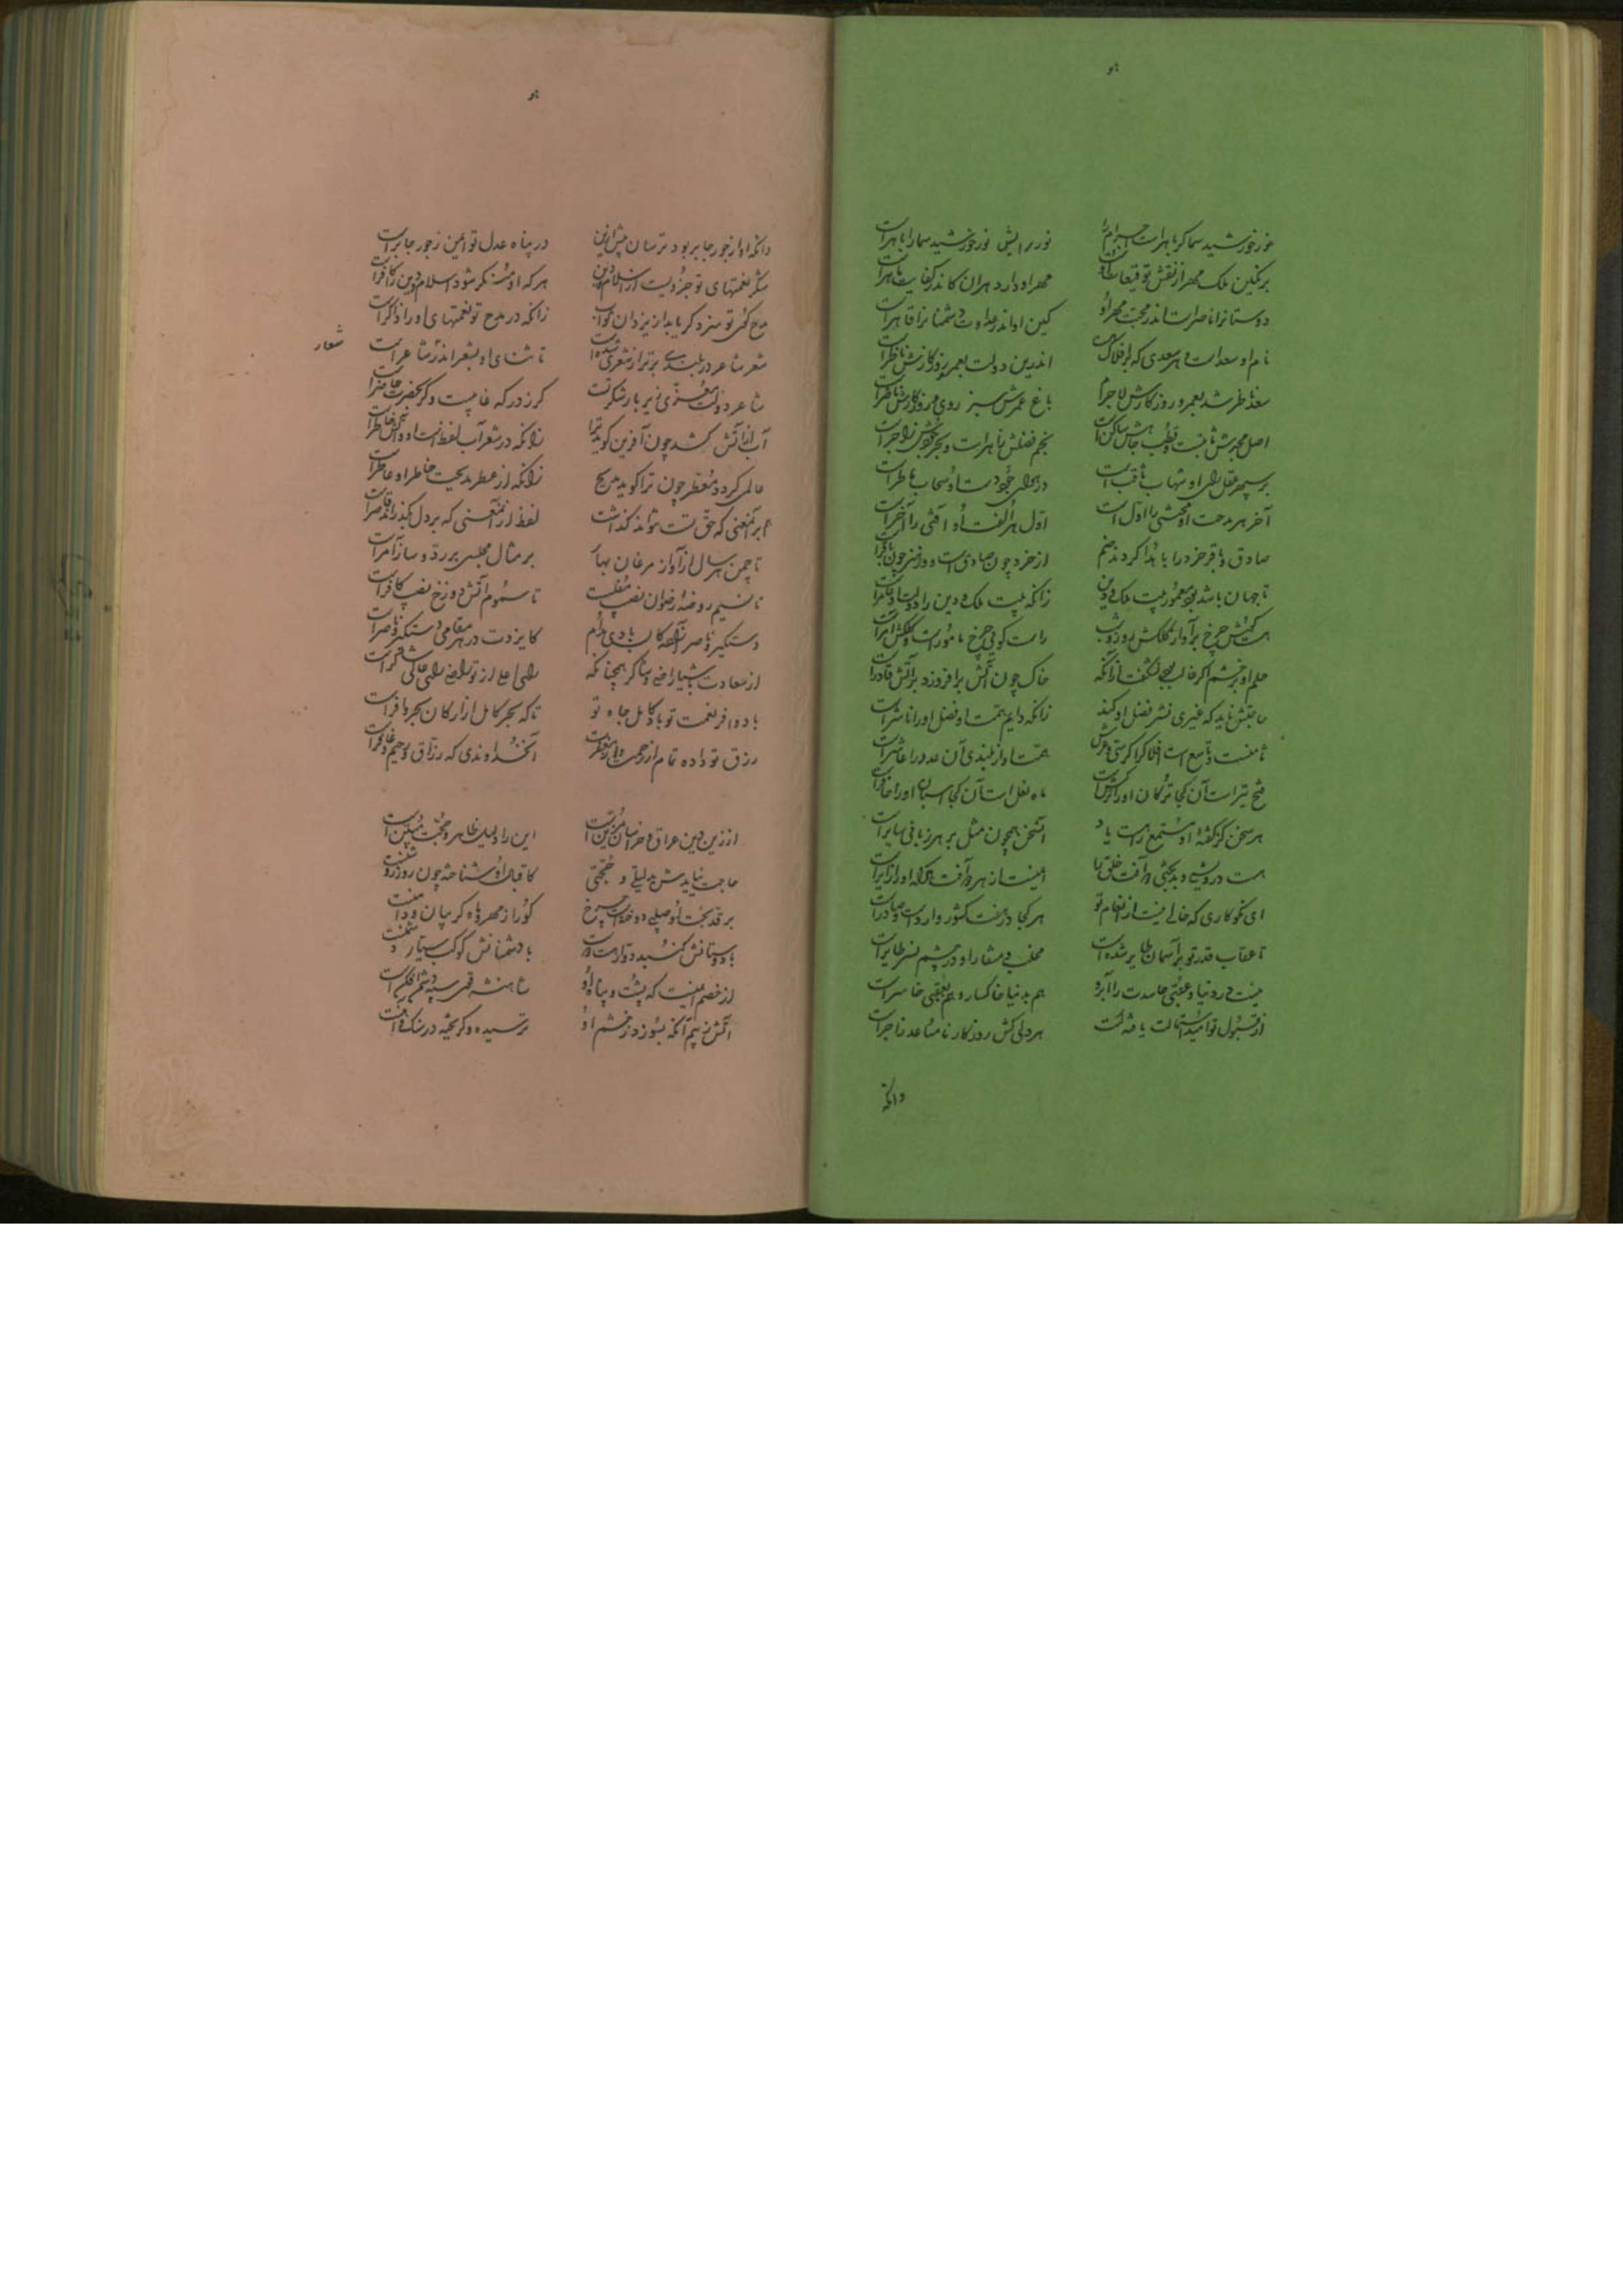 هو
نور خورشید سما گر باهر است اجرام را    نور رایش نور خورشید سما را باهر است
بر نگین ملک مهر از نقش توقیعات او    مهر او دارد هر آن کاندر کفایت ماهر است
دوستانرا ناصر است اندر محبت مهر او    کین او اندر عداوت دشمنانرا قاهر است
نام او سعد است و هر سعدی که بر افلاک    اندرین دولت بعمر و روزگارش ناظر است
سعد ناظر شد بعمر و روزگارش لاجرم    باغ عمرش سبز و روی روزگارش ناضر است
اصل مجدش ثابت و قطب جاهش ساکن است    نجم فضلش زاهر است و بحر جودش زاخر است
بر سپهر عقل رای او شهاب ثاقب است    در هوای جود دست او سحاب ماطر است
آخر هر مدحت او محتشی را اول است    اول هر الفت او آفتی را آخر است
صادق و باقر خرد را با هدا کردند ضم    از خرد چون صادق است و در هنر چون باقر است
تا جهان باشد بود معمور بیت ملک و دین    زانکه بیت ملک و دین را دولت او عامر است
هست گیتیش چرخ بر آواز کلکش روز و شب    راست گویی چرخ مامور است و کلکش آمر است
حلم او بر خشم اگر غالب بود نشگفت از آنکه    خاک چون آتش برافروزد بر آتش قادر است
حاجتش ناید که غیری نشر فضل او کند    زانکه دایم همت او فضل او را ناشر است
ثامنست و تاسع است افلاک را کرسی و عرش    همت او از بلندی آن عدد را عاشر است
فتح تیر است آن کجا ترکان او را ترکش است    ماه نعل است آن کجا اسبان او را حافر است
هر سخن کز گفته او مستمع را هست یاد    آن سخن همچون مثل بر هر زبانی سایر است
هست درویشی و بدبختی و آفت خلق را    ایمنست از هر دو آفت هر که او را زایر است
ای نکوکاری که خالی نیست از انعام تو    هر کجا در هفت کشور وارد است و صادر است
تا عقاب قدر تو بر آسمان طایر شده است    مخلب و منقار او در چشم نسر طایر است
نیست در دنیا و عقبی حاسدت را آبرو    هم بدنیا خاکسار و هم بعقبی خاسر است
از قبول تو امید استمالت یافته است    هر دلی کش روزگار نامساعد زاجر است
وانکه
هو
وانکه او از جور جابر بود ترسان پیش ازین    در پناه عدل تو ایمن ز جور جابر است
شکر نعمتهای تو جزویست از اسلام و دین    هر که او منکر شود اسلام و دین را کافر است
مدح گوی تو سزد گر یابد از یزدان ثواب    زانکه در مدح تو نعمتهای او را ذاکر است
شعر شاعر در بلندی برتر از شعری شده است    تا ثنای او بشعر اندر شعار شاعر است
شعار
شاعر دولت معزی زیر بار شکر تست    گر ز درگه غایبست و گر بحضرت حاضر است
آب از آتش کشد چون آفرین گوید ترا    زانکه در شعر آب لفظ است او و آتش خاطر است
عالمی گردد معطر چون ترا گوید مدیح    زانکه از عطر مدیحت خاطر او عاطر است
هر آن معنی که حق تست نتواند گذاشت    لفظ از آن معنی که بر دل بگذراند قاصر است
تا چمن هر سال از آواز مرغان بهار    بر مثال مجلس پر رود و ساز زامر است
تا نسیم روضه رضوان نصیب مفلحست    تا سموم آتش دوزخ نصیب کافر است
دستگیر و ناصر آن کان بادی مدام    کایزدت در هر مقامی دستگیر و ناصر است
از سعادت باش راضی و شاکر همچنانکه    راضی از تو راضی شاکر است
باد وافر نعمت تو باد کامل جاه تو    تا که بحر کامل از ارکان بحر وافر است
رزق تو داده تمام از رحمت و از مغفرت    آن خداوندی که رزاق و رحیم و غافر است
از زین دین عراق و خراسان مزین است    این را دلیل ظاهر و حجت مبین است
حاجت نیایدش بدلیلی و حجتی    کاقبال او شناخته چون روز روشنست
بر قد بخت او صلبی دوخت چرخ    کورا ز مهر و ماه گریبان و دامنست
با دوستانش گنبد دوار هست دوست    با دشمنانش کوکب سیار دشمنست
از خصم ایمنست که پشت و پناه او    شاهنشه سپهدار است
آتش ز بیم آنکه بسوزد ز خشم او    ترسیده و گریخته در سنگ و آهنست